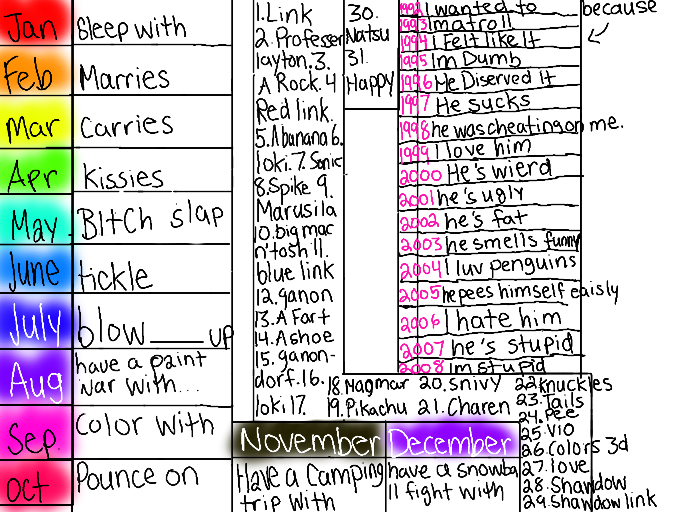 Jan Sleep with
Feb Marries
Mar Carries
Apr kissies
May BItCh slap
June tickle
July blow____up
Aug have a paint
war with...
Sep. Color with
oct Pounce on
November
Have a Camping
trip with
December
have a snowba
ll fight with
1.Link
2. Professer
layton.3.
A Rock. 4
Red link.
5.A banana 6.
loki.7. Sonic
8.Spike 9.
Marusila
10.big mac
n'tosh 11.
blue link
12.ganon
13.A Fart
14.A shoe
15.ganon-
dorf.16.
loki 17.
18.Magmar
19.Pikachu
20.snivy
21.Charen
22.Knuckles
23.Tails
24.Pee
25.Vio
26.Colors 3d
27.love
28.Shandow
29.Shandow link
30.
Natsu
31.
Happy
because
1992 I wanted to
1993 Im a troll
1994 I Felt like It
1995 Im Dumb
1996 He Diserved It
1997 He sucks
1998 he was cheating on me.
1999 I love him
2000 He's wierd
2001 he's ugly
2002 he's fat
2003 he smells funny
2004 I luv penguins
2005 he pees himself eaisly
2006 I hate him
2007 he's stupid
2008 im stupid